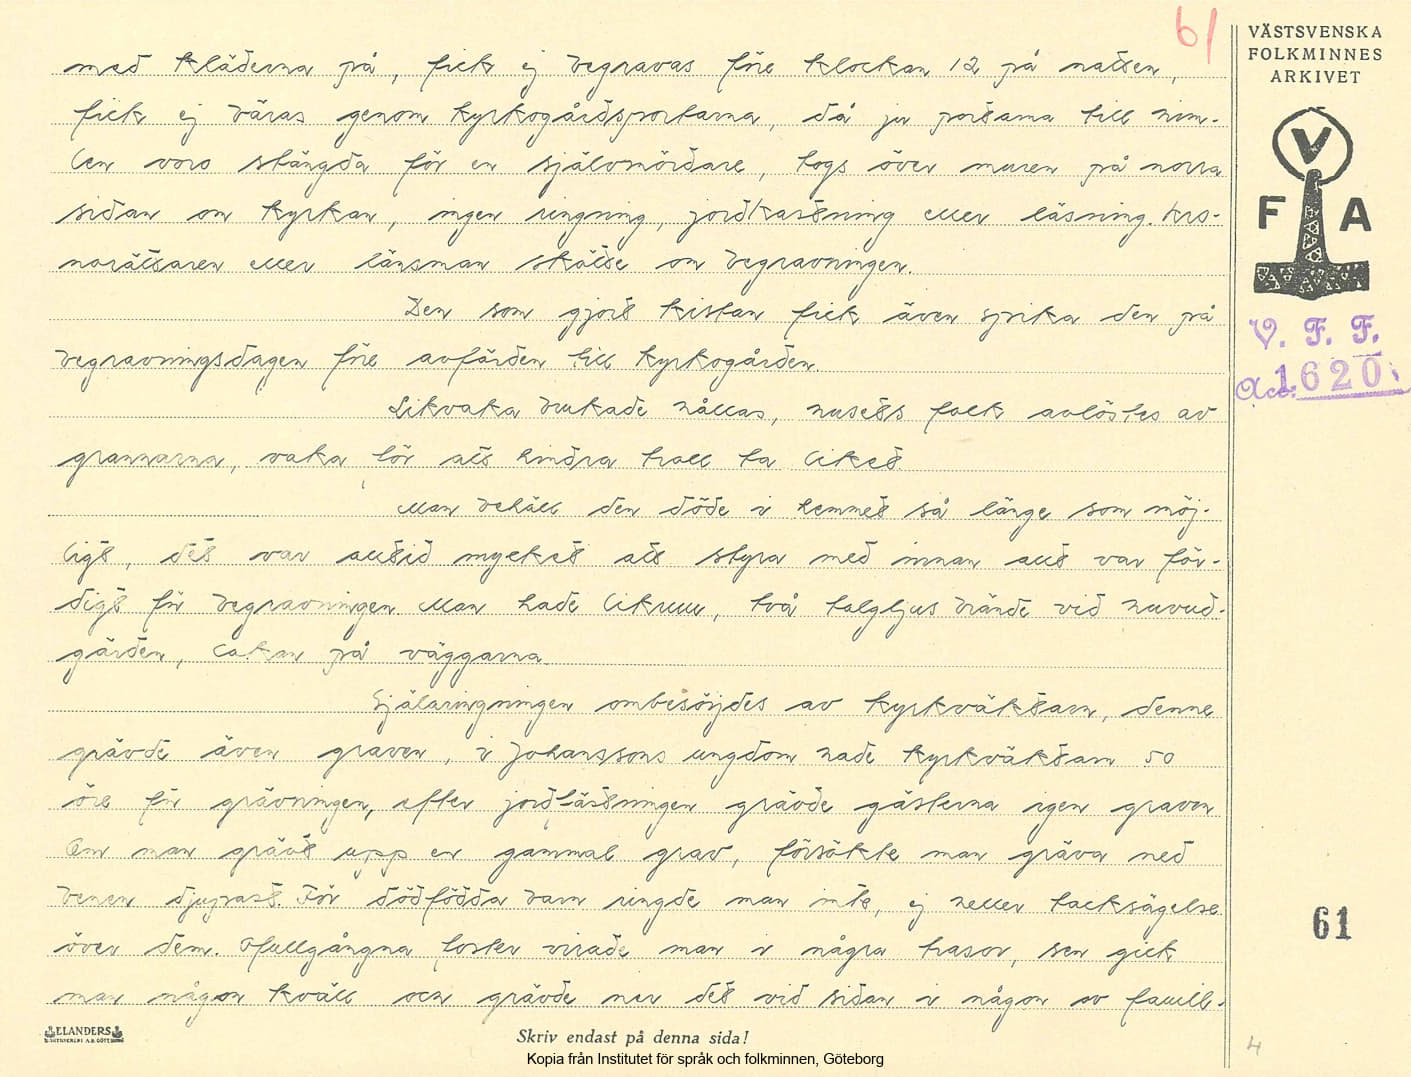 61
VÄSTSVENSKA
FOLKMINNES
ARKIVET
V
F A
V. F. F.
Acc. 1620
med kläderna på, fick ej begravas före klockan 12 på natten,
fick ej bäras genom kyrkogårdsportarna, då ju portarna till him-
len voro stängda för en självmördare, togs över muren på norra
sidan om kyrkan, ingen ringning, jordkastning eller läsning. Kro-
norättaren eller länsman skötte om begravningen.
Den som gjort kistan fick även spika den på
begravningsdagen före avfärden till kyrkogården.
Likvaka brukade hållas, husets folk avlöstes av
grannarna, vaka för att hindra troll ta liket.
Man behöll den döde i hemmet så länge som möj-
ligt, det var alltid mycket att styra med innan allt var fär-
digt för begravningen. Man hade likrum, två talgljus brände vid huvud-
gärden, lakan på väggarna.
Själaringningen ombesörjdes av kyrkväktarn, denne
grävde även graven, i Johanssons ungdom hade kyrkväktarn 50
öre för grävningen, efter jordfästningen grävde gästerna igen graven
Om man grävt upp en gammal grav, försökte man gräva ned
benen djupast. För dödfödda barn ringde man inte, ej heller tacksägelse
över dem. Ofullgångna foster virade man i några trasor, sen gick
man någon kväll och grävde ner det vid sidan i någon av famill-
61
4
ELANDERS
Skriv endast på denna sida!
Kopia från Institutet för språk och folkminnen, Göteborg